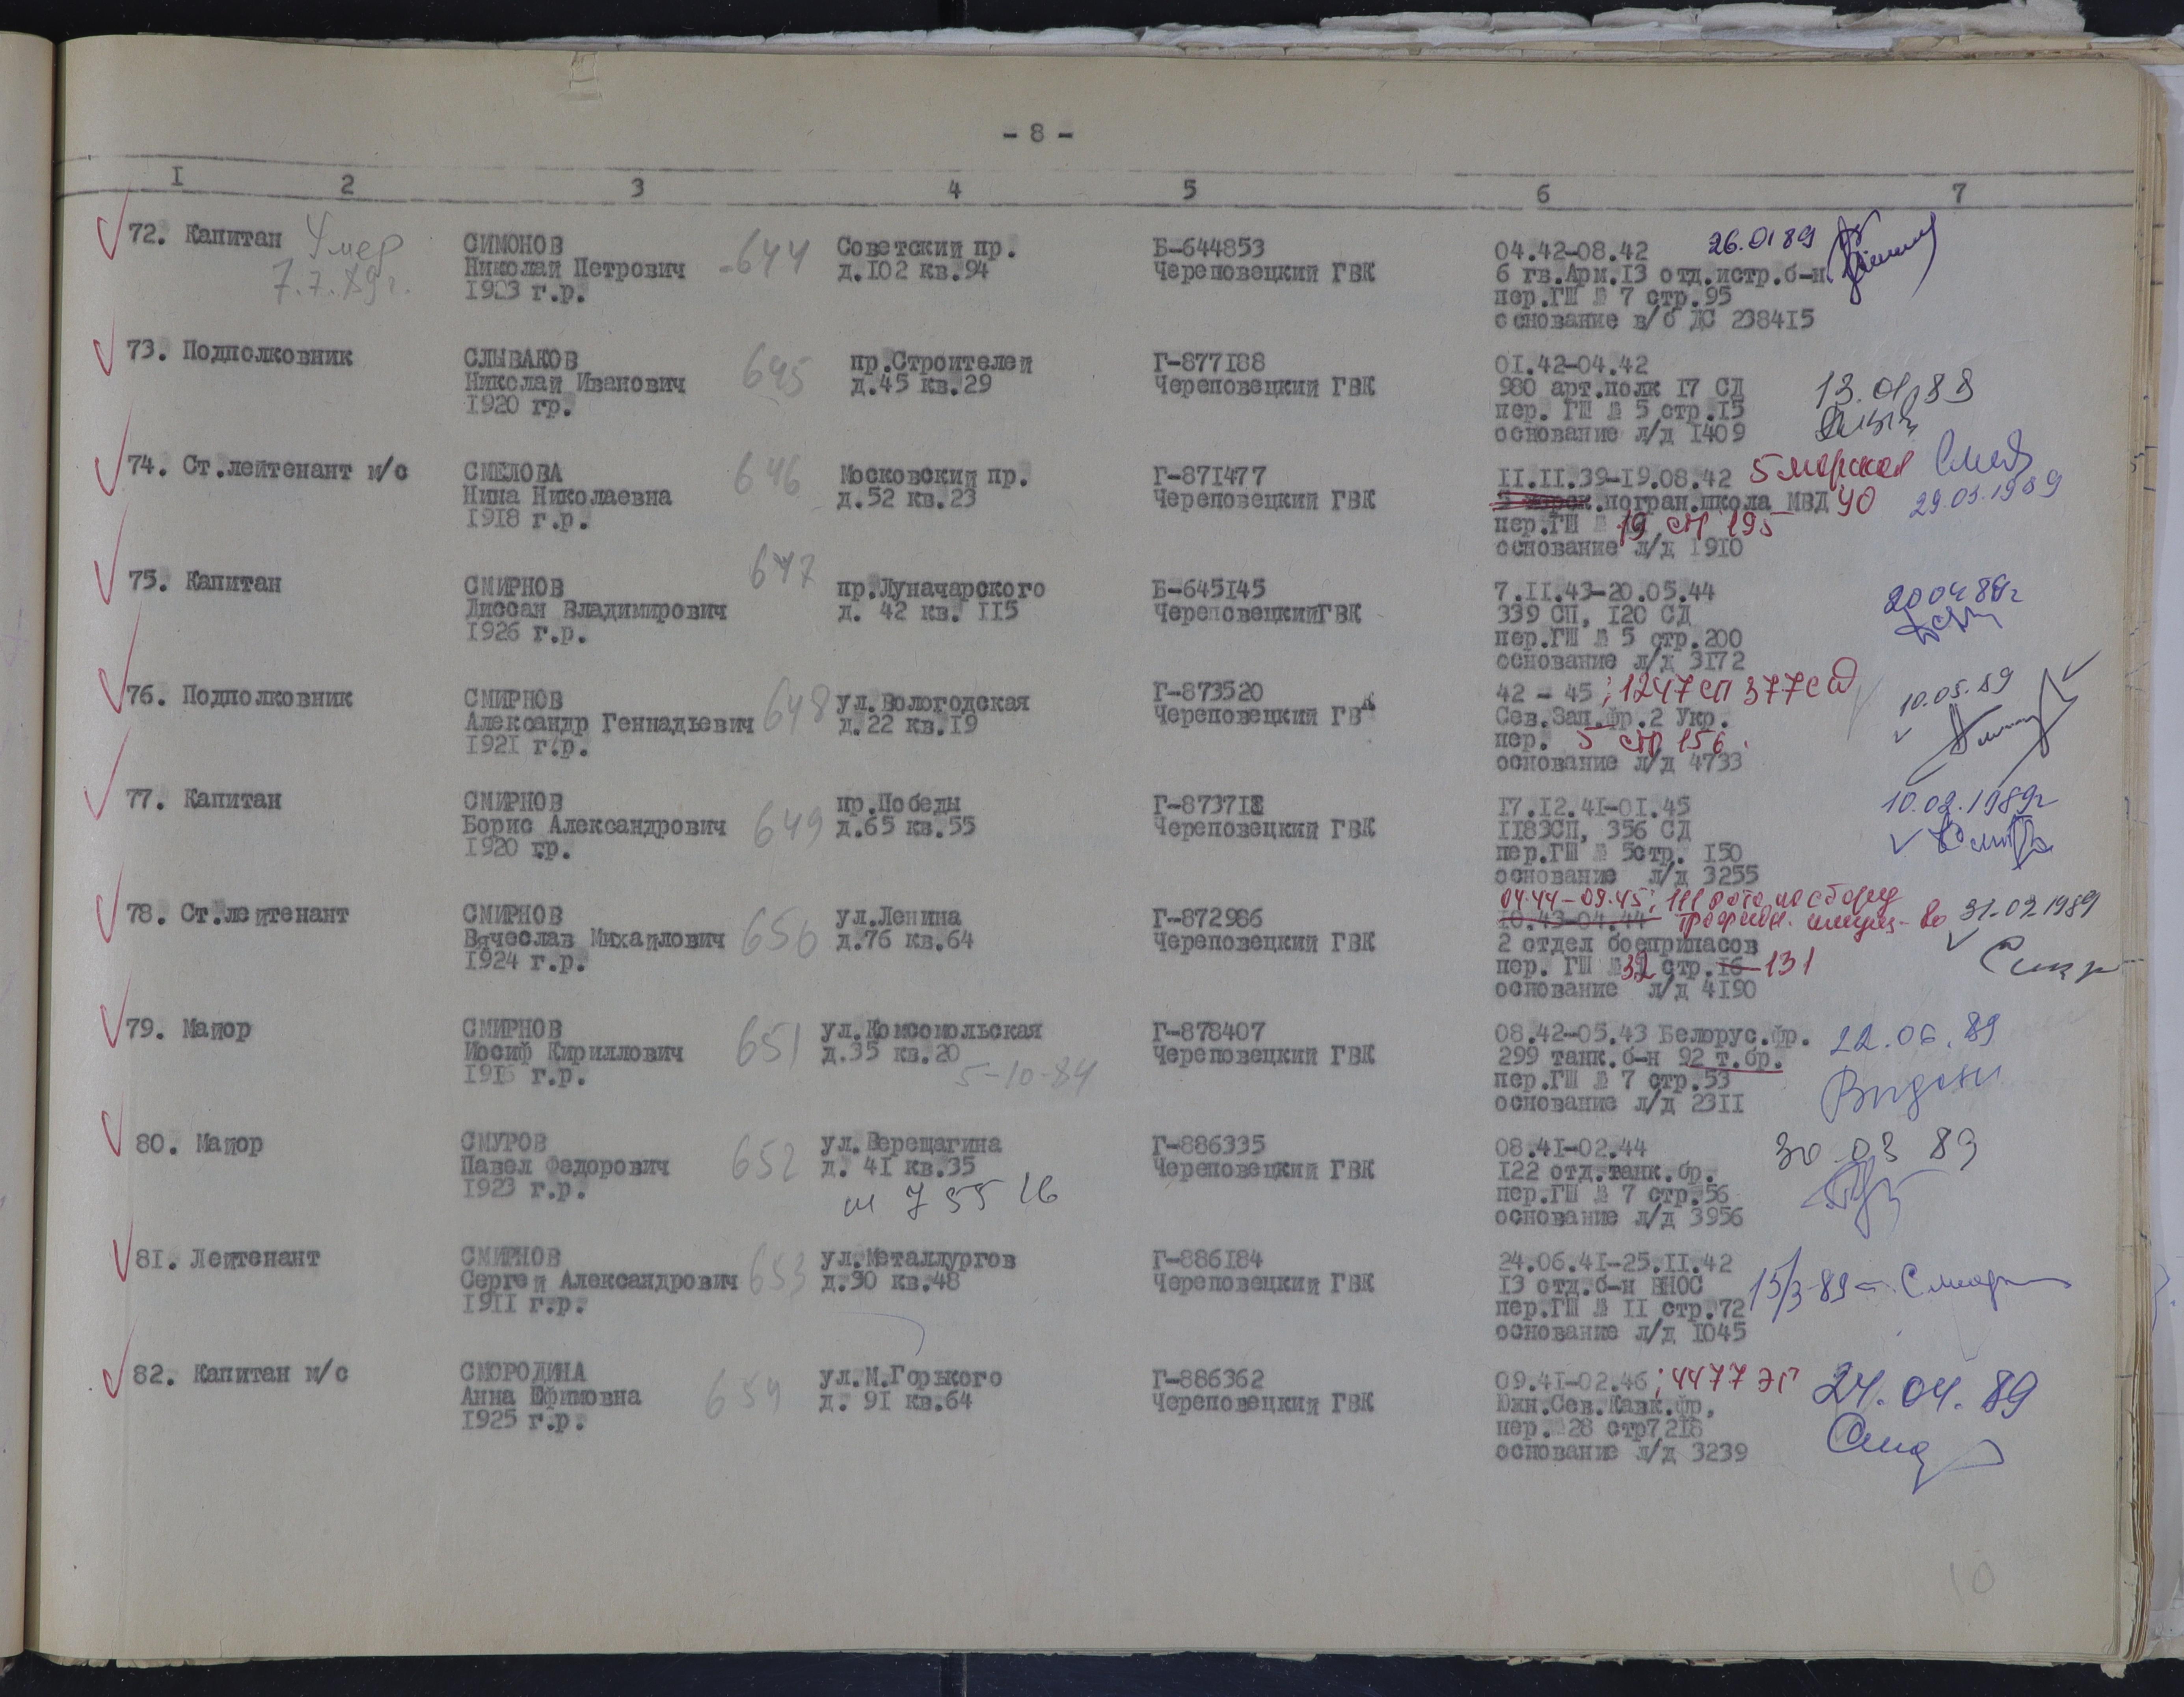 - 8 -
I 2 3 4 5 6 7
72. Капитан Умер 7.7.89г.
СИМОНОВ
Николай Петрович
1923 г.р.
644
Советский пр.
д.I02 кв.94
Б-644853
Череповецкий ГВК
04.42-08.42
6 гв.Арм.I3 отд.истр.б-н.
пер.ГШ № 7 стр.95
основание в/б ДС 2384I5
26.01 89
73. Подполковник
СЛЫВАКОВ
Николай Иванович
1920 гр.
645
пр.Строителей
д.45 кв.29
Г-877I88
Череповецкий ГВК
0I.42-04.42
980 арт.полк I7 СД
пер. ГШ № 5 стр.I5
основание л/д I409
13.01.89
74. Ст.лейтенант м/с
СМЕЛОВА
Нина Николаевна
1918 г.р.
646
Московский пр.
д.52 кв.23
Г-87I477
Череповецкий ГВК
II.II.39-I9.08.42 5 морская
5 морск.погран.школа МВД ЧО
пер.ГШ № 19 стр 195
основание л/д I9I0
29.03.1989
75. Капитан
СМИРНОВ
Диссан Владимирович
1926 г.р.
647
пр.Луначарского
д. 42 кв. II5
Б-645I45
ЧереповецкийГВК
7.II.43-20.05.44
339 СП, I20 СД
пер.ГШ № 5 стр.200
основание л/д 3I72
20 04 89г
76. Подполковник
СМИРНОВ
Александр Геннадьевич
1921 г.р.
648
ул.Вологодская
д.22 кв.I9
Г-873520
Череповецкий ГВК
42 - 45 ; 1247 сп 377 сд
Сев.Зап.фр.2 Укр.
пер. 5 стр 156.
основание л/д 4733
10.05.89
77. Капитан
СМИРНОВ
Борис Александрович
1920 г.р.
649
пр.Победы
д.65 кв.55
Череповецкий ГВК
I7.I2.4I-0I.45
II83СП, 356 СД
пер.ГШ № 5стр. I50
основание л/д 3255
10.02.1989г
78. Ст.лейтенант
СМИРНОВ
Вячеслав Михайлович
1924 г.р.
650
ул.Ленина
д.76 кв.64
Г-872986
Череповецкий ГВК
04.44-09.45; 111 рота по сбору
I0.43-04.44 трофейн. имущ-ва
2 отдел боеприпасов
пер. ГШ №32 стр.I6 131
основание л/д 4I90
31.03.1989
79. Майор
СМИРНОВ
Иосиф Кириллович
г.р.
651
ул.Комсомольская
д.35 кв.20
5-10-84
Г-878407
Череповецкий ГВК
08.42-05.43 Белорус.фр.
299 танк.б-н 92 т.бр.
пер.ГШ № 7 стр.53
основание л/д 23II
22.06.89
80. Майор
СМУРОВ
Павел Федорович
1923 г.р.
652
ул.Верещагина
д. 4I кв.35
7 55 16
Г-886335
Череповецкий ГВК
08.4I-02.44
I22 отд.танк.бр.
пер.ГШ № 7 стр.56
основание л/д 3956
30.03 89
8I. Лейтенант
СМИРНОВ
Сергей Александрович
I9II г.р.
653
ул.Металлургов
д.30 кв.48
Г-886I84
Череповецкий ГВК
24.06.4I-25.II.42
I3 отд.б-н ВНОС
пер.ГШ № II стр.72
основание л/д I045
15/3-89
82. Капитан м/с
СМОРОДИНА
Анна Ефимовна
1925 г.р.
654
ул.М.Горького
д. 9I кв.64
Г-886362
Череповецкий ГВК
09.4I-02.46 ; 4477 ЭГ
Южн.Сев.Кавк.фр.
пер. 28 стр
основание л/д 3239
24.04.89
10